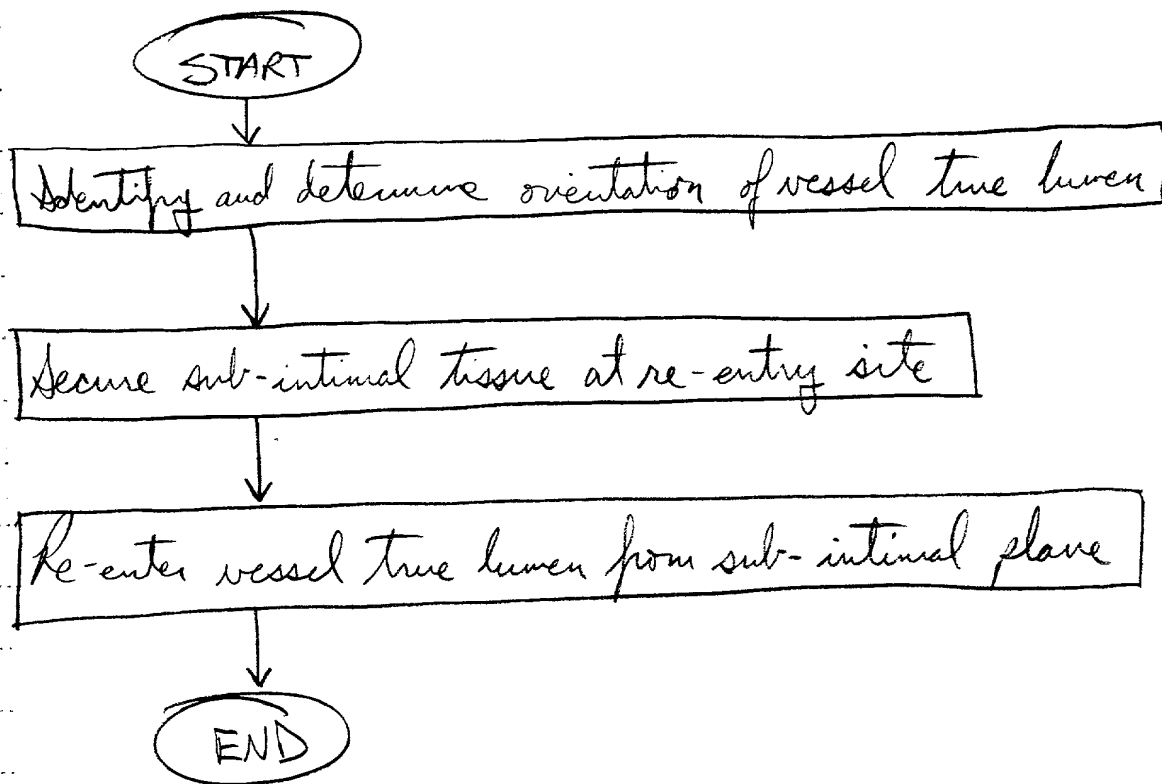 START
Identify and determine orientation of vessel true lumen
Secure sub-intimal tissue at re-entry site
Re-enter vessel true lumen from sub-intimal plane
END